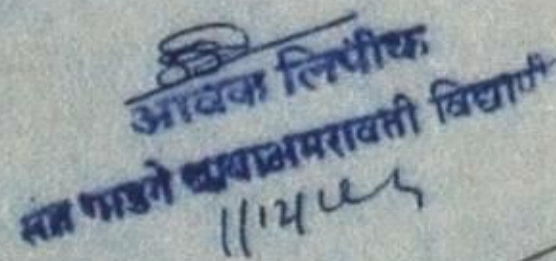 आवक लिपीक
संत गाडगे बाबा अमरावती विद्यापी